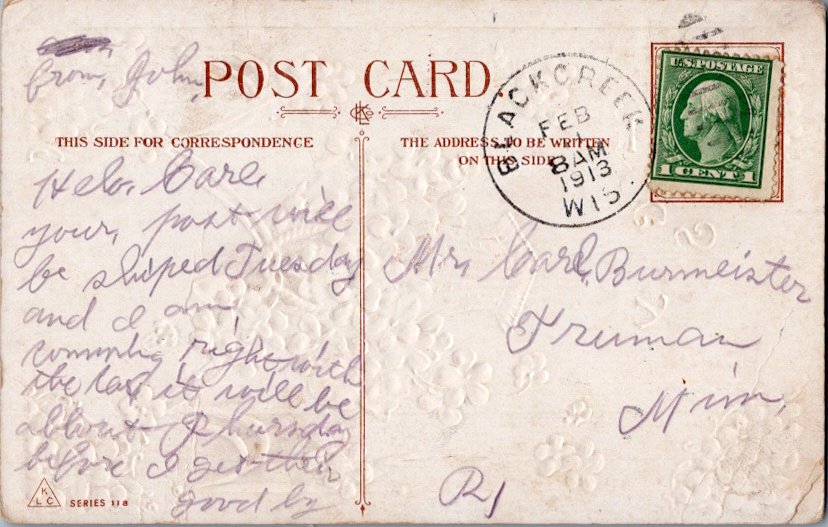 from, John,
POST CARD
KLCo
THIS SIDE FOR CORRESPONDENCE
THE ADDRESS TO BE WRITTEN
ON THIS SIDE
BLACK CREEK
FEB
1
8 AM
1913
WIS.
U.S. POSTAGE
1 CENT 1
Helo, Carl
your, post will
be shiped Tuesday
and I am,
comming right with
the car it will be
abbout Thursday
before I get ther
good by
Mr. Carl, Burmeister
Truman
Minn,
R1
KLC
SERIES 118